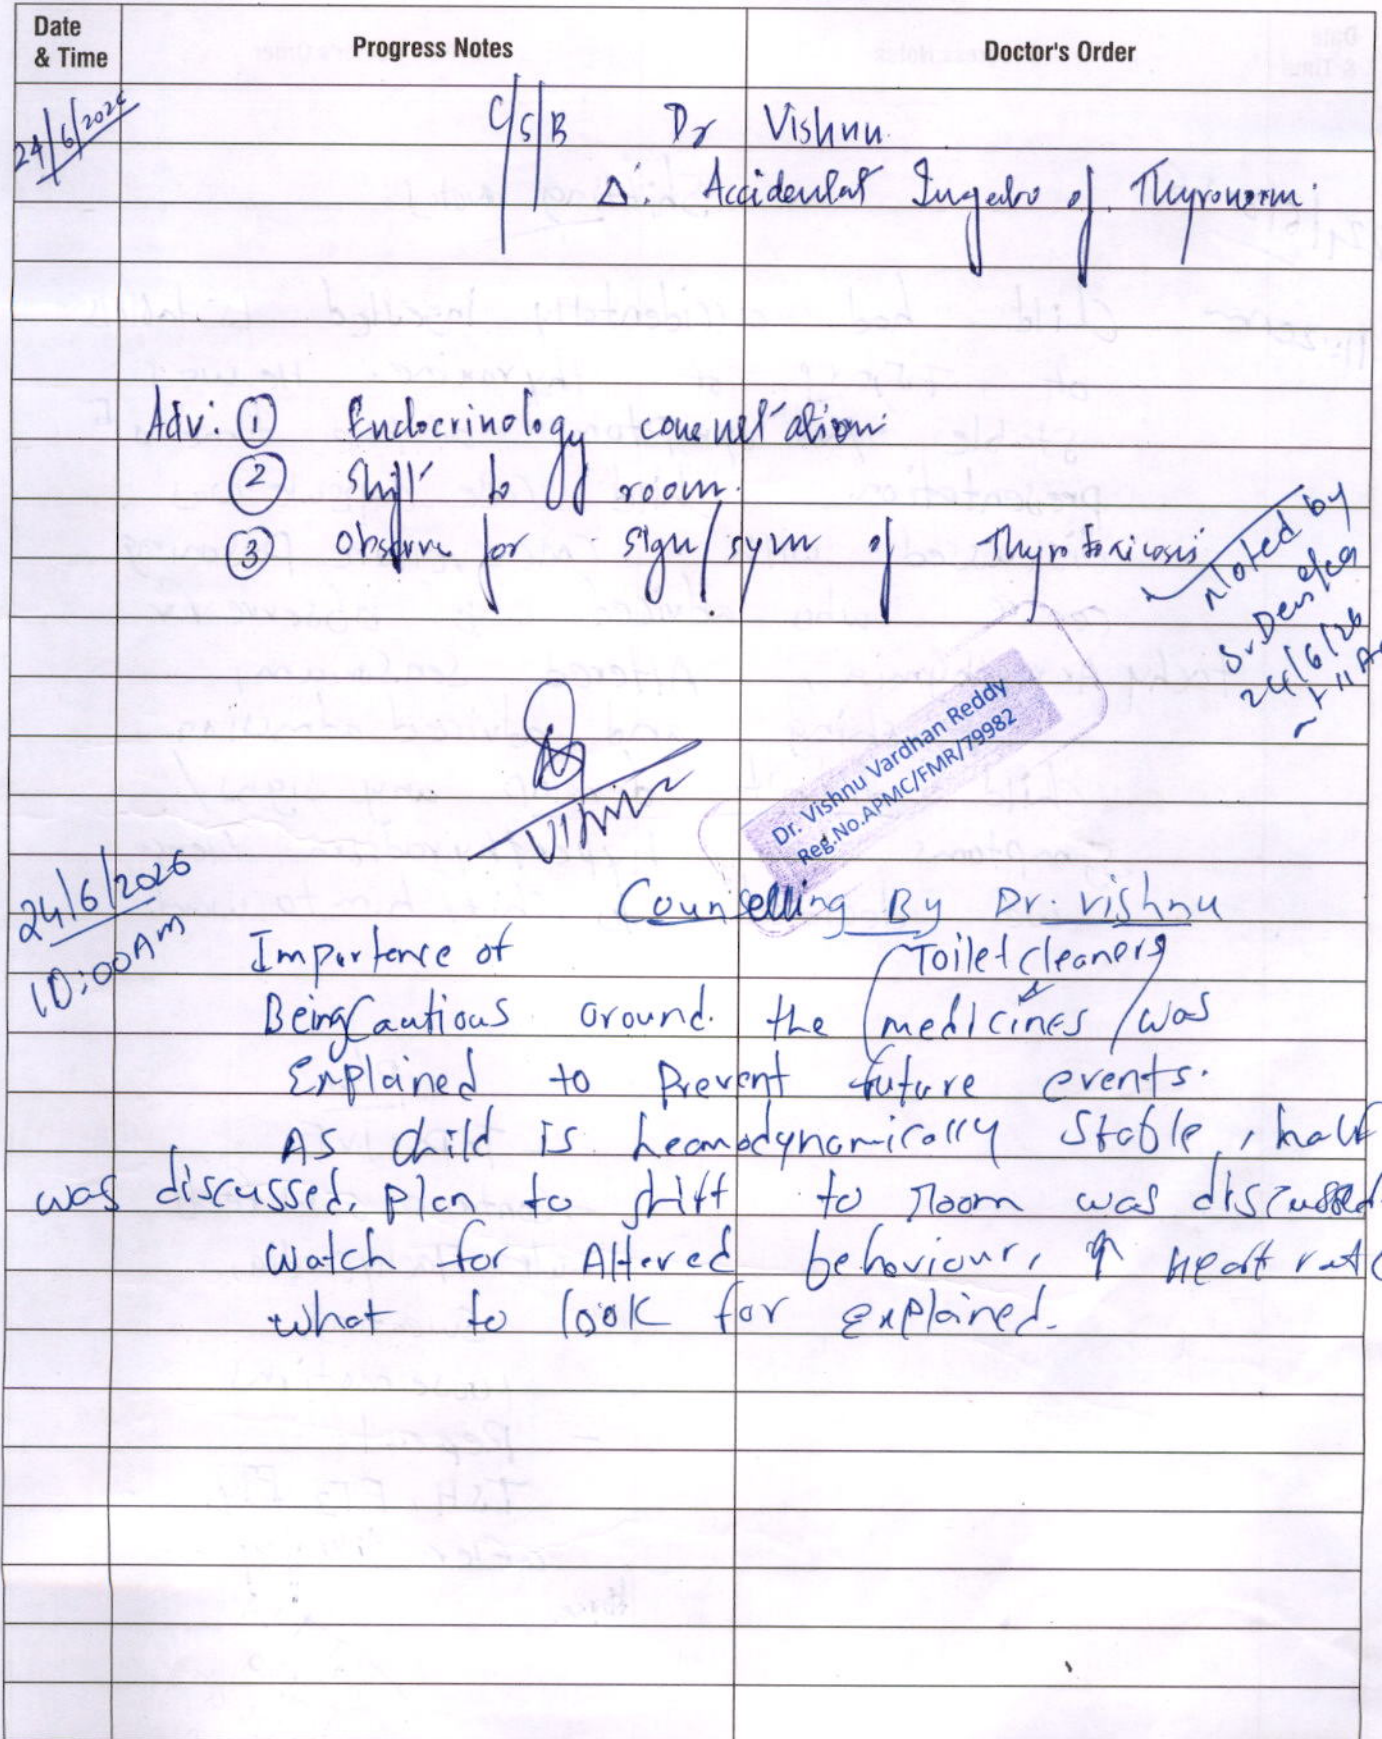 Date & Time Progress Notes Doctor's Order
24/6/2026
C/S/B Dr Vishnu.
Δ: Accidental Ingestio of. Thyronorm.
Adv: ① Endocrinology consultation
② Shift to room.
③ Observe for sign/sym of Thyrotoxicosis
Noted by
24/6/26
Dr. Vishnu Vardhan Reddy
Reg.No.APMC/FMR/79982
Vishnu
24/6/2026
10:00AM
Counselling By Dr. vishnu
Importance of Toilet cleaners
Being Cautious around. the medicines was
Explained to Prevent future events.
As child is heamodynamically stable,
was discussed. plan to shift to room was discussed.
Watch for Altered behaviour, ↑ heart rate
what to look for explained.